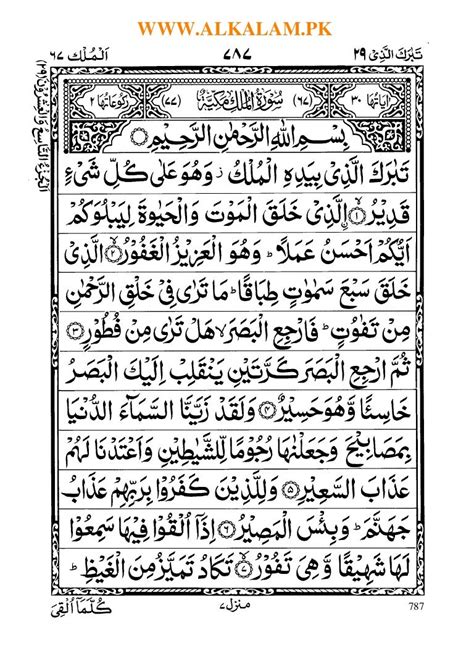 WWW.ALKALAM.PK
تَبٰرَكَ الَّذِیْ ٢٩ ٧٨٧ اَلْمُلْك ٦٧
اٰیَاتُهَا ٣٠ (٦٧) سُوْرَةُ الْمُلْكِ مَكِّیَّةٌ (٧٧) رُكُوْعَاتُهَا ٢
بِسْمِ اللّٰهِ الرَّحْمٰنِ الرَّحِیْمِ
تَبٰرَكَ الَّذِیْ بِیَدِهِ الْمُلْكُ ز وَهُوَ عَلٰى كُلِّ شَیْءٍ
قَدِیْرُ ۙ﴿١﴾ اِلَّذِیْ خَلَقَ الْمَوْتَ وَالْحَیٰوةَ لِیَبْلُوَكُمْ
اَیُّكُمْ اَحْسَنُ عَمَلًا ؕ وَهُوَ الْعَزِیْزُ الْغَفُوْرُ ۙ﴿٢﴾ الَّذِیْ
خَلَقَ سَبْعَ سَمٰوٰتٍ طِبَاقًا ؕ مَا تَرٰى فِیْ خَلْقِ الرَّحْمٰنِ
مِنْ تَفٰوُتٍ ؕ فَارْجِعِ الْبَصَرَ ۙ هَلْ تَرٰى مِنْ فُطُوْرٍ ﴿٣﴾
ثُمَّ ارْجِعِ الْبَصَرَ كَرَّتَیْنِ یَنْقَلِبْ اِلَیْكَ الْبَصَرُ
خَاسِئًا وَّهُوَ حَسِیْرٌ ﴿٤﴾ وَلَقَدْ زَیَّنَّا السَّمَآءَ الدُّنْیَا
بِمَصَابِیْحَ وَجَعَلْنٰهَا رُجُوْمًا لِّلشَّیٰطِیْنِ وَاَعْتَدْنَا لَهُمْ
عَذَابَ السَّعِیْرِ ﴿٥﴾ وَلِلَّذِیْنَ كَفَرُوْا بِرَبِّهِمْ عَذَابُ
جَهَنَّمَ ؕ وَبِئْسَ الْمَصِیْرُ ﴿٦﴾ اِذَاۤ اُلْقُوْا فِیْهَا سَمِعُوْا
لَهَا شَهِیْقًا وَّهِیَ تَفُوْرُ ۙ﴿٧﴾ تَكَادُ تَمَیَّزُ مِنَ الْغَیْظِ ؕ
كُلَّمَاۤ اُلْقِیَ
منزل ٧
787